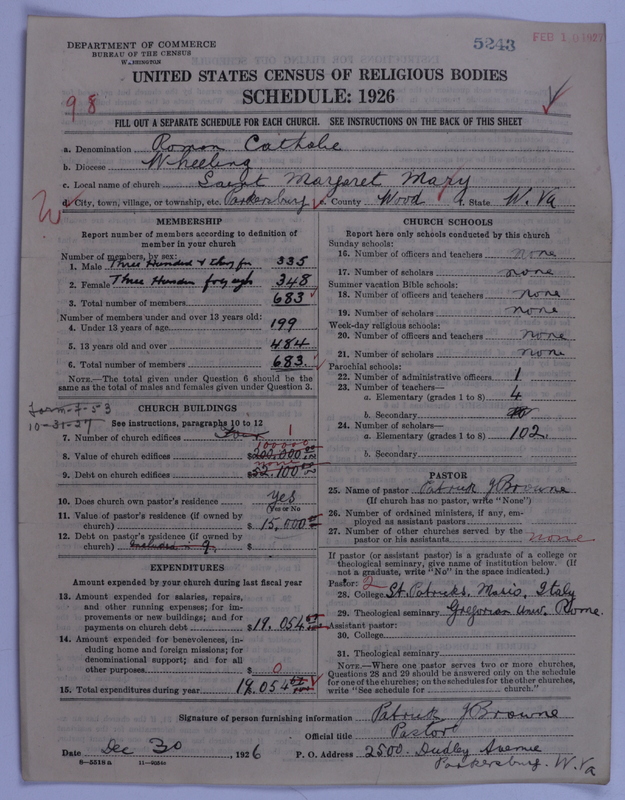 DEPARTMENT OF COMMERCE
BUREAU OF THE CENSUS
WASHINGTON
5243
FEB 10 1927
UNITED STATES CENSUS OF RELIGIOUS BODIES
SCHEDULE: 1926
98
FILL OUT A SEPARATE SCHEDULE FOR EACH CHURCH. SEE INSTRUCTIONS ON THE BACK OF THIS SHEET
a. Denomination Roman Catholic
b. Diocese Wheeling
c. Local name of church Saint Margaret Mary
d. City, town, village, or township, etc. Parkersburg e. County Wood f. State W. Va
MEMBERSHIP
Report number of members according to definition of
member in your church
Number of members, by sex:
1. Male Three Hundred & thirty five 335
2. Female Three Hundred forty eight 348
3. Total number of members 683
Number of members under and over 13 years old:
4. Under 13 years of age 199
5. 13 years old and over 484
6. Total number of members 683
NOTE.—The total given under Question 6 should be the
same as the total of males and females given under Question 3.
Form-7-53
10-31-27
CHURCH BUILDINGS
See instructions, paragraphs 10 to 12
7. Number of church edifices 1
100000
8. Value of church edifices $200,000
none
9. Debt on church edifices $52,100
10. Does church own pastor's residence Yes
(Yes or No)
11. Value of pastor's residence (if owned by
church) $15,000
12. Debt on pastor's residence (if owned by
church) Included in 9
EXPENDITURES
Amount expended by your church during last fiscal year
13. Amount expended for salaries, repairs,
and other running expenses; for im-
provements or new buildings; and for
payments on church debt $19,054
14. Amount expended for benevolences, in-
cluding home and foreign missions; for
denominational support; and for all
other purposes $ 0
15. Total expenditures during year 19,054
CHURCH SCHOOLS
Report here only schools conducted by this church
Sunday schools:
16. Number of officers and teachers none
17. Number of scholars none
Summer vacation Bible schools:
18. Number of officers and teachers none
19. Number of scholars none
Week-day religious schools:
20. Number of officers and teachers none
21. Number of scholars none
Parochial schools:
22. Number of administrative officers 1
23. Number of teachers—
a. Elementary (grades 1 to 8) 4
b. Secondary
24. Number of scholars—
a. Elementary (grades 1 to 8) 102
b. Secondary
PASTOR
25. Name of pastor Patrick J Browne
(If church has no pastor, write "None")
26. Number of ordained ministers, if any, em-
ployed as assistant pastors
27. Number of other churches served by the
pastor or his assistants none
If pastor (or assistant pastor) is a graduate of a college or
theological seminary, give name of institution below. (If
not a graduate, write "No" in the space indicated.)
Pastor: 2
28. College St. Patricks, Italy
29. Theological seminary Gregorian Univ. Rome.
Assistant pastor:
30. College
31. Theological seminary
NOTE.—Where one pastor serves two or more churches,
Questions 28 and 29 should be answered only on the schedule
for one of the churches; on the schedules for the other churches,
write "See schedule for church."
Signature of person furnishing information Patrick J Browne
Official title Pastor
Date Dec 30, 1926 P. O. Address 2500. Dudley Avenue
8—5518a
Parkersburg. W. Va